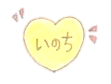 いのち